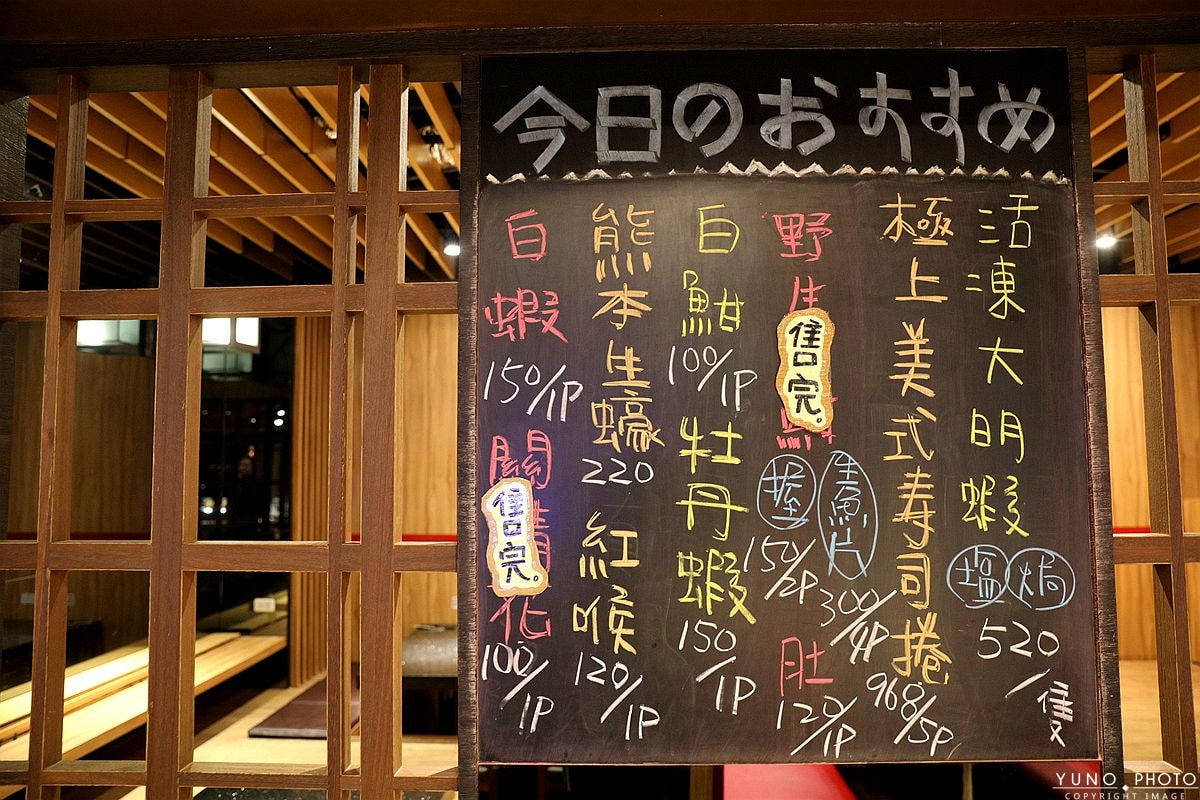 今日のおすすめ
活凍大明蝦
塩焗
520/隻
極上美式寿司捲
968/5P
野生
售完。
握
150/2P
生魚片
300/4P
肚
120/1P
白魽
100/1P
牡丹蝦
150/1P
熊本生蠔
220
紅喉
120/1P
白蝦
150/1P
關
售完。
花
100/1P
YUNO PHOTO
COPYRIGHT IMAGE